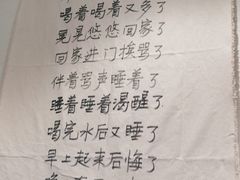 喝着喝着又多了
晃晃悠悠回家了
回家进门挨骂了
伴着骂声睡着了
睡着睡着渴醒了
喝完水后又睡了
早上起来后悔了